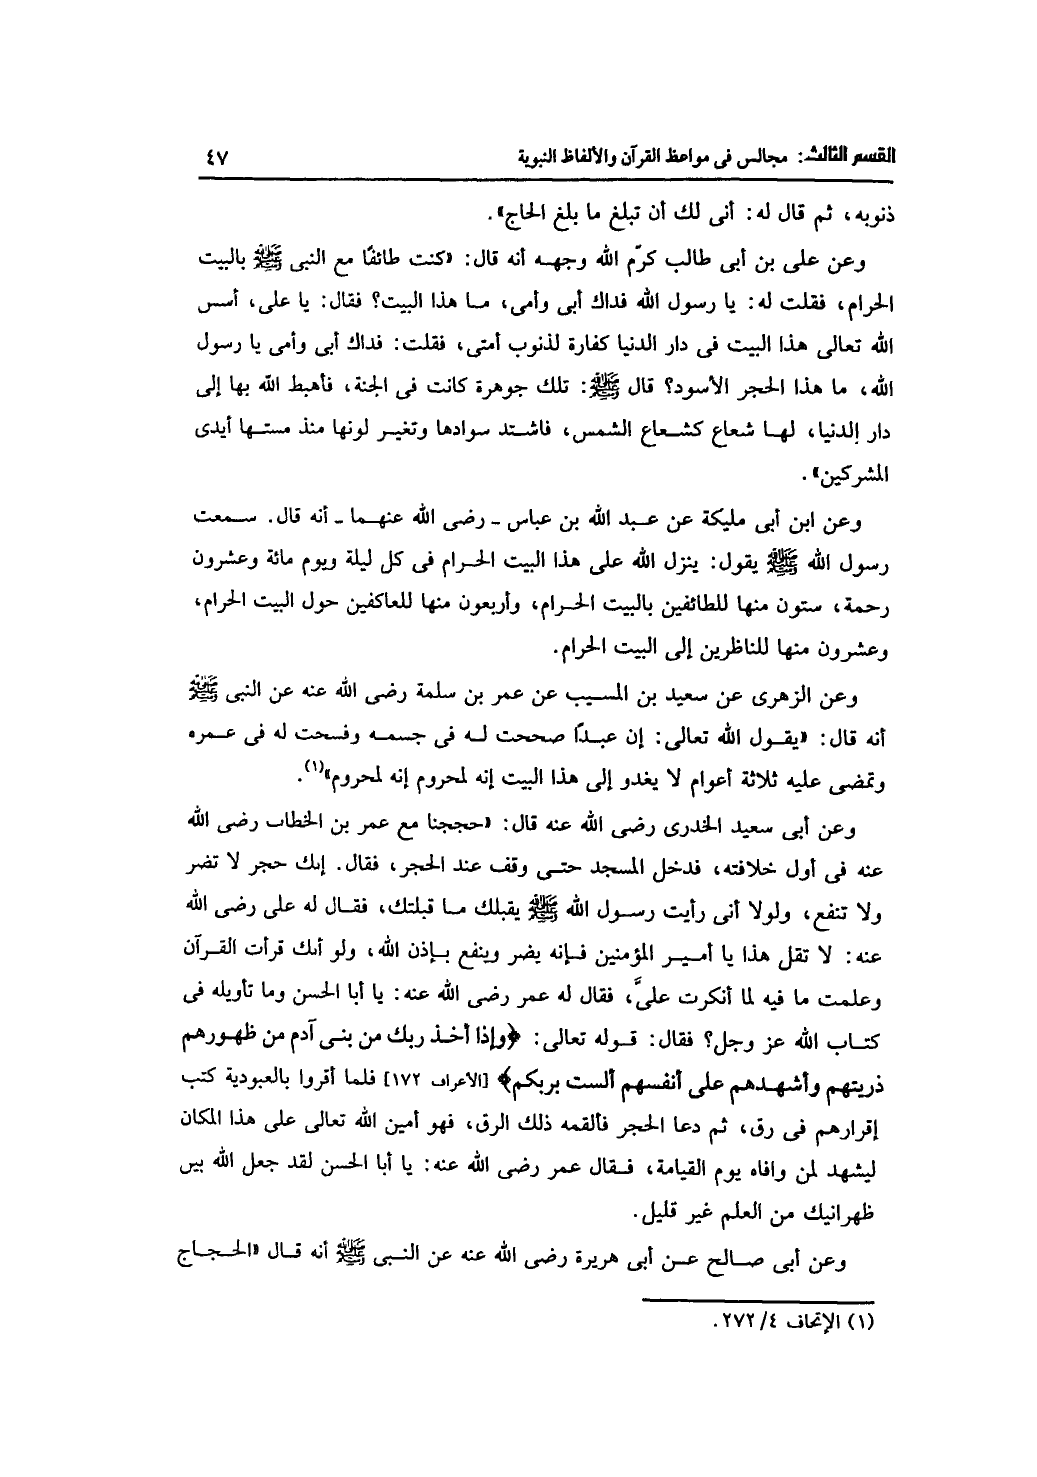 القسم الثالث: مجالس فى مواعظ القرآن والألفاظ النبوية ٤٧
ذنوبه، ثم قال له: أنى لك أن تبلغ ما بلغ الحاج».
وعن على بن أبى طالب كرّم الله وجهه أنه قال: «كنت طائفًا مع النبى ﷺ بالبيت
الحرام، فقلت له: يا رسول الله فداك أبى وأمى، ما هذا البيت؟ فقال: يا على، أسس
الله تعالى هذا البيت فى دار الدنيا كفارة لذنوب أمتى، فقلت: فداك أبى وأمى يا رسول
الله، ما هذا الحجر الأسود؟ قال ﷺ: تلك جوهرة كانت فى الجنة، فأهبط الله بها إلى
دار الدنيا، لها شعاع كشعاع الشمس، فاشتد سوادها وتغير لونها منذ مستها أيدى
المشركين».
وعن ابن أبى مليكة عن عبد الله بن عباس ـ رضى الله عنهما ـ أنه قال. سمعت
رسول الله ﷺ يقول: ينزل الله على هذا البيت الحرام فى كل ليلة ويوم مائة وعشرون
رحمة، ستون منها للطائفين بالبيت الحرام، وأربعون منها للعاكفين حول البيت الحرام،
وعشرون منها للناظرين إلى البيت الحرام.
وعن الزهرى عن سعيد بن المسيب عن عمر بن سلمة رضى الله عنه عن النبى ﷺ
أنه قال: «يقول الله تعالى: إن عبدًا صححت له فى جسمه وفسحت له فى عمره
وتمضى عليه ثلاثة أعوام لا يغدو إلى هذا البيت إنه لمحروم إنه لمحروم»(١).
وعن أبى سعيد الخدرى رضى الله عنه قال: «حججنا مع عمر بن الخطاب رضى الله
عنه فى أول خلافته، فدخل المسجد حتى وقف عند الحجر، فقال. إنك حجر لا تضر
ولا تنفع، ولولا أنى رأيت رسول الله ﷺ يقبلك ما قبلتك، فقال له على رضى الله
عنه: لا تقل هذا يا أمير المؤمنين فإنه يضر وينفع بإذن الله، ولو أنك قرأت القرآن
وعلمت ما فيه لما أنكرت علىَّ، فقال له عمر رضى الله عنه: يا أبا الحسن وما تأويله فى
كتاب الله عز وجل؟ فقال: قوله تعالى: ﴿وإذا أخذ ربك من بنى آدم من ظهورهم
ذريتهم وأشهدهم على أنفسهم ألست بربكم﴾ [الأعراف ١٧٢] فلما أقروا بالعبودية كتب
إقرارهم فى رق، ثم دعا الحجر فألقمه ذلك الرق، فهو أمين الله تعالى على هذا المكان
ليشهد لمن وافاه يوم القيامة، فقال عمر رضى الله عنه: يا أبا الحسن لقد جعل الله بين
ظهرانيك من العلم غير قليل.
وعن أبى صالح عن أبى هريرة رضى الله عنه عن النبى ﷺ أنه قال «الحجاج
(١) الإتحاف ٤/ ٢٧٢.